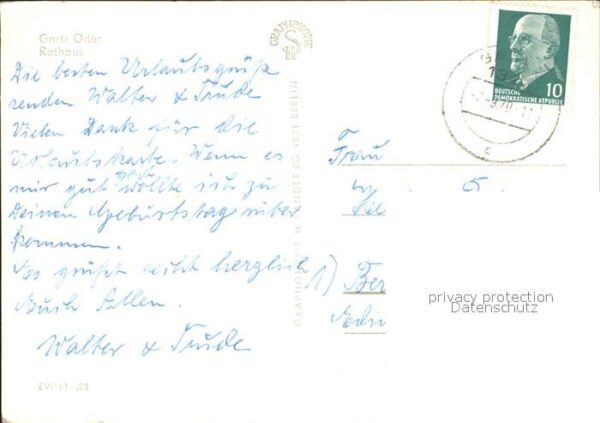 Gartz Oder
Rathaus
Die besten Urlaubsgrüße
senden Walter & Trude
Vielen Dank für die
Urlaubskarte. Wenn es
mir gut geht wollte ich zu
Deinem Geburtstag rüber
kommen.
Es grüßt recht herzlich
Euch Allen.
Walter & Trude
BVP M
GRAPHOKOPIE H. SANDER KG 1071 BERLIN
GRAPHOKOPIE
DEUTSCHE
DEMOKRATISCHE REPUBLIK
10
c
Frau
1) Ber
privacy protection
Datenschutz